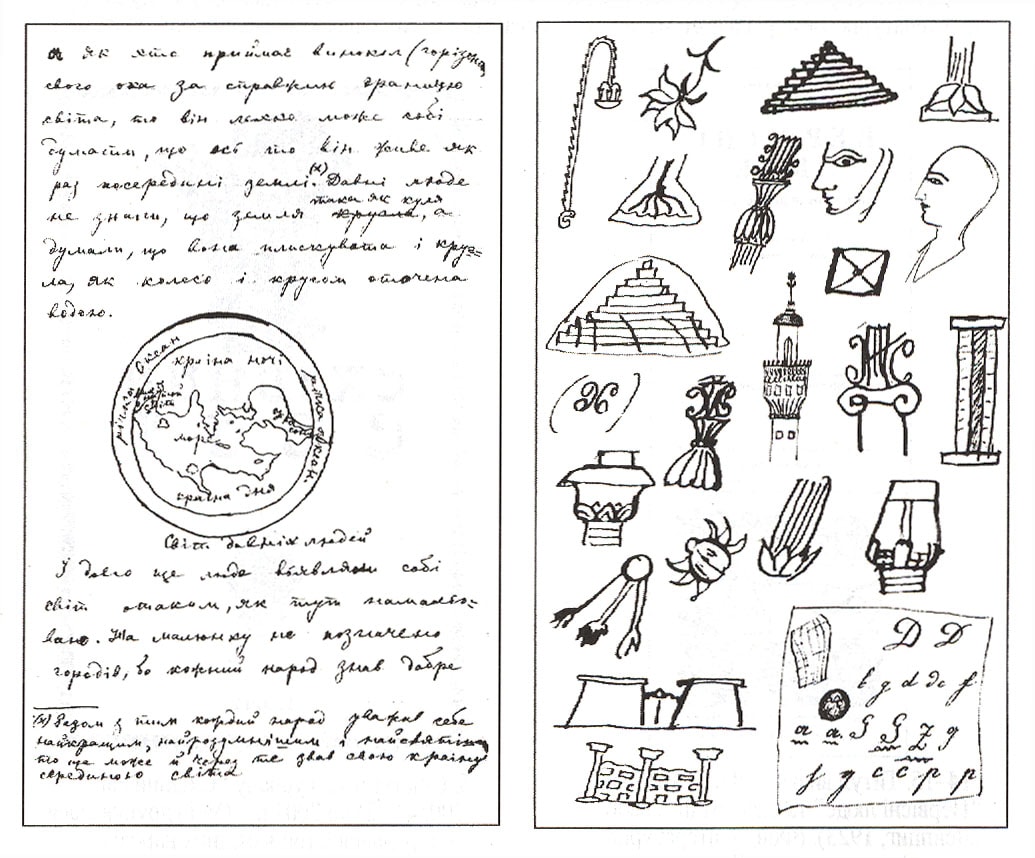 а як хто приймає виднокол (горізонт)
свого ока за справжню границю
світа, то він легко може собі
думати, що ось то він живе як
раз посередині землі.(х) Давні люде
не знали, що земля така як куля
кругла, а
думали, що вона плисковата і круг-
ла, як колесо і кругом оточена
водою.
ріка Океан
країна ночі
ріка океан.
море
країна дня
Світ давніх людей
І довго ще люде виявляли собі
світ отаким, як тут намальо-
вано. На малюнку не позначено
городів, бо кожний народ знав добре
(х) Разом з тим кождий народ уважав себе
найкращим, найрозумнішим і найсвятішим
то ще може й через те звав свою країну
серединою світа
D D
b g d дс f
a a G G Z g
f g c c p p